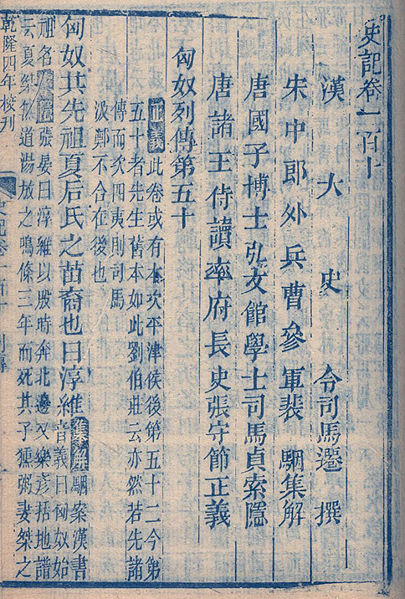 史記卷一百十
漢大史令司馬遷撰
宋中郎外兵曹參軍裴駰集解
唐國子博士弘文館學士司馬貞索隱
唐諸王侍讀率府長史張守節正義
匈奴列傳第五十
正義此卷或有本次平津侯後第五十二今第
五十者先生舊本如此劉伯莊云亦然若先諸
傳而次四夷則司馬
汲鄭不合在後也
匈奴其先祖夏后氏之苗裔也曰淳維集解駰案漢書
音義曰匈奴始
祖名索隱張晏曰淳維以殷時奔北邊又樂彥括地譜
云夏桀無道湯放之鳴條三年而死其子獯粥妻桀之
乾隆四年校刊
史記卷一百十
列傳